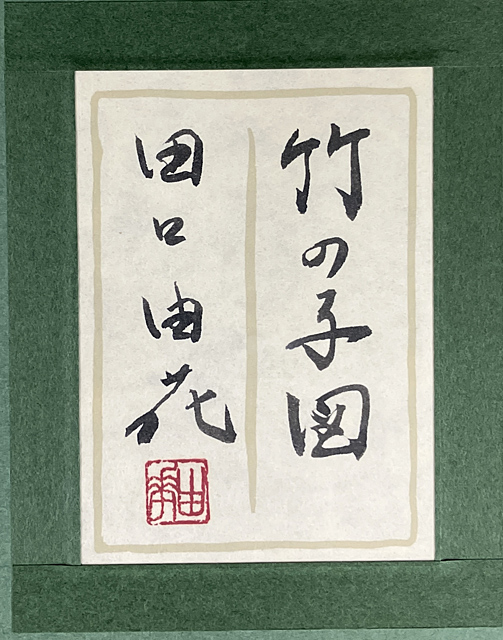 竹の子図
田口由花